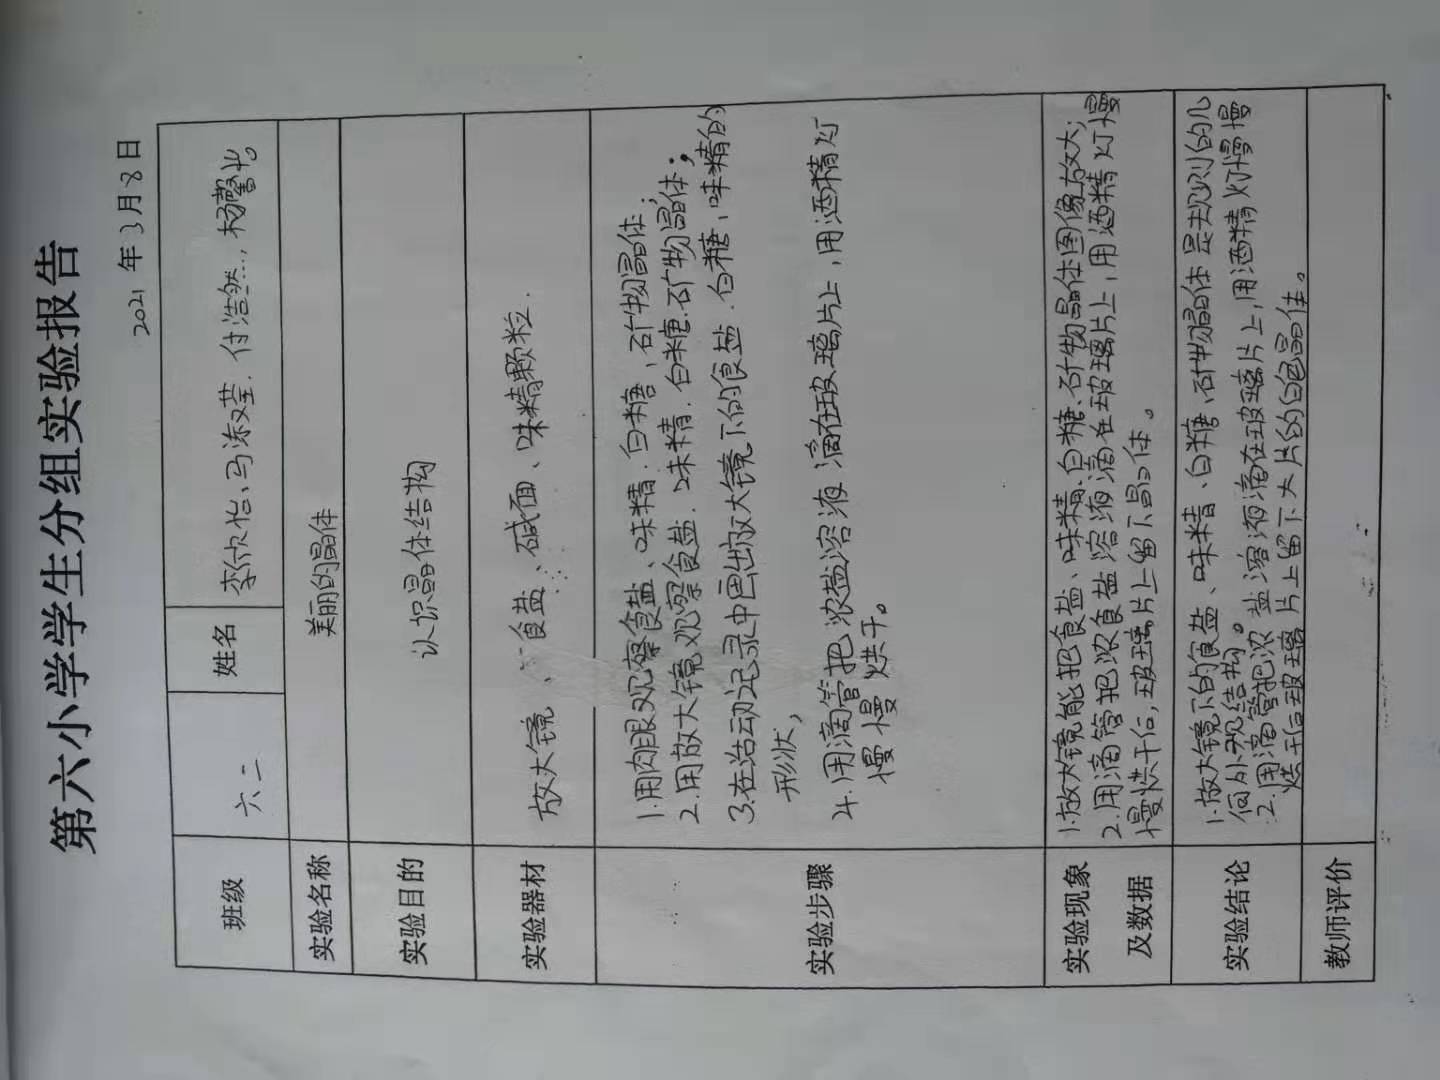 第六小学学生分组实验报告
2021年3月8日
班级 六二 姓名 李欣怡、马添莹、付浩然、杨馨
实验名称 美丽的晶体
实验目的 认识晶体结构
实验器材 放大镜、食盐、碱面、味精颗粒.
实验步骤
1.用肉眼观察食盐、味精.白糖,矿物晶体;
2.用放大镜观察食盐.味精.白糖.矿物晶体;
3.在活动记录中画出放大镜下的食盐.白糖,味精的
形状,
4.用滴管把浓盐溶液滴在玻璃片上,用酒精灯
慢慢烘干。
实验现象
及数据
1.放大镜能把食盐、味精、白糖、矿物晶体图像放大;
2.用滴管把浓食盐溶液滴在玻璃片上,用酒精灯慢
慢烘干后,玻璃片上留下晶体。
实验结论
1.放大镜下的食盐、味精、白糖、矿物晶体是规则的几
何外观结构。
2.用滴管把浓盐溶液滴在玻璃片上,用酒精灯慢慢
烘干后玻璃片上留下大片的白色晶体。
教师评价